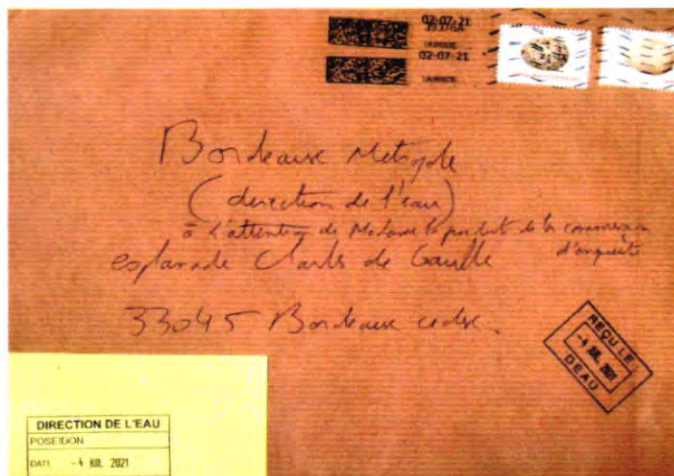 02-07-21
LA POSTE
02-07-21
LA POSTE
Bordeaux Métropole
(direction de l'eau)
à l'attention de Madame la de la commission
d'enquête
esplanade Charles de Gaulle
33045 Bordeaux cedex.
REÇU LE
-4 JUL. 2021
DEAU
DIRECTION DE L'EAU
POSEIDON
DATE -4 JUL. 2021